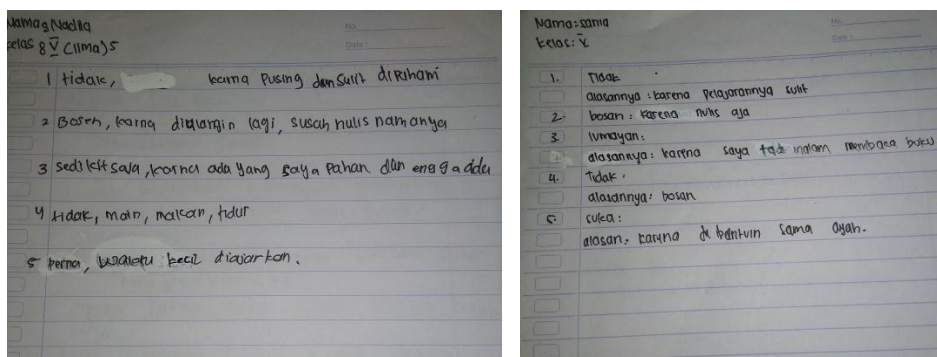 Nama : Nadila
Kelas 8 V (lima) 5
1 tidak, karna pusing dan sulit dipihami
2 Bosen, karna diulangin lagi, susah nulis namanya
3 sedikit saja, karna ada yang saya pahan dan engga ada
4 tidak, main, makan, tidur
5 perna, kecil diajarkan.
No.
Date :
Nama : sania
kelas : V
No.
Date :
1. Tidak
alasannya : karena pelajarannya sulit
2. bosan : karena nulis aja
3 lumayan :
alasannya : karena saya membaca buku
4. Tidak.
alasannya : bosan
5. suka :
alasan : karena di bantuin sama ayah.